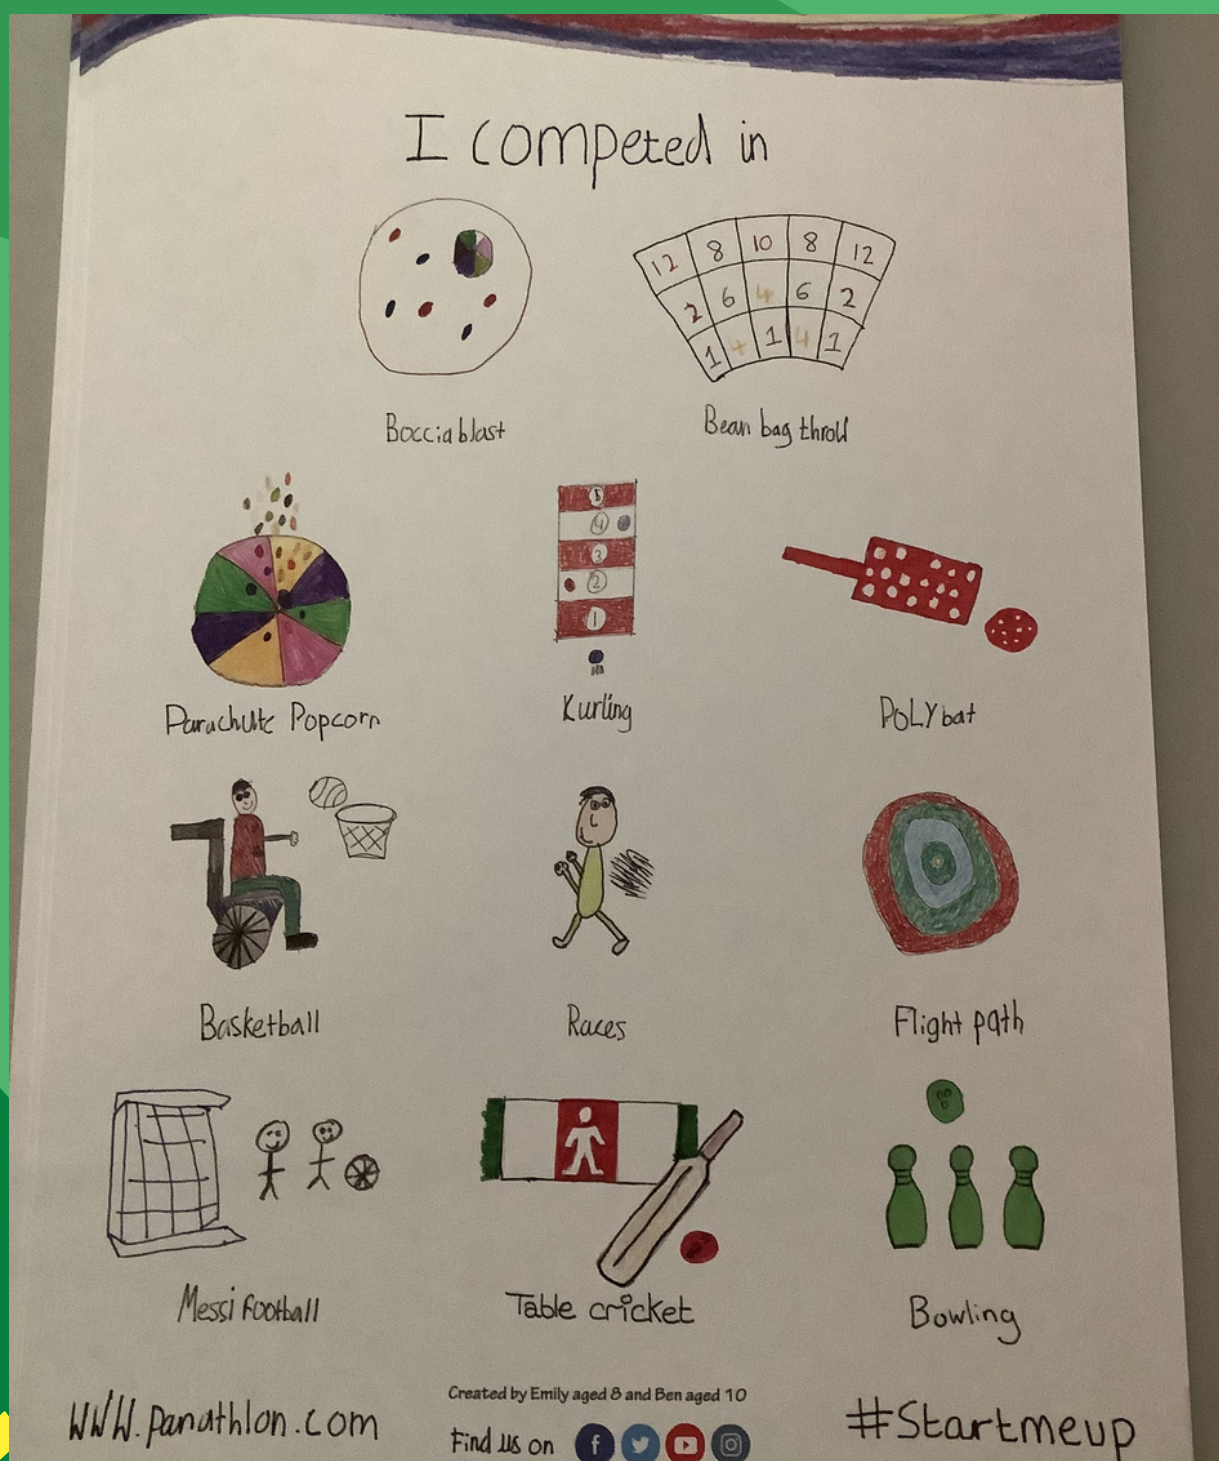 I competed in
12 8 10 8 12
2 6 4 6 2
1 4 1 4 1
Boccia blast
Bean bag throw
5
4
3
2
1
Parachute Popcorn
Kurling
POLYbat
Basketball
Races
Flight path
Messi football
Table cricket
Bowling
Created by Emily aged 8 and Ben aged 10
WWW.panathlon.com
Find us on
#Startmeup